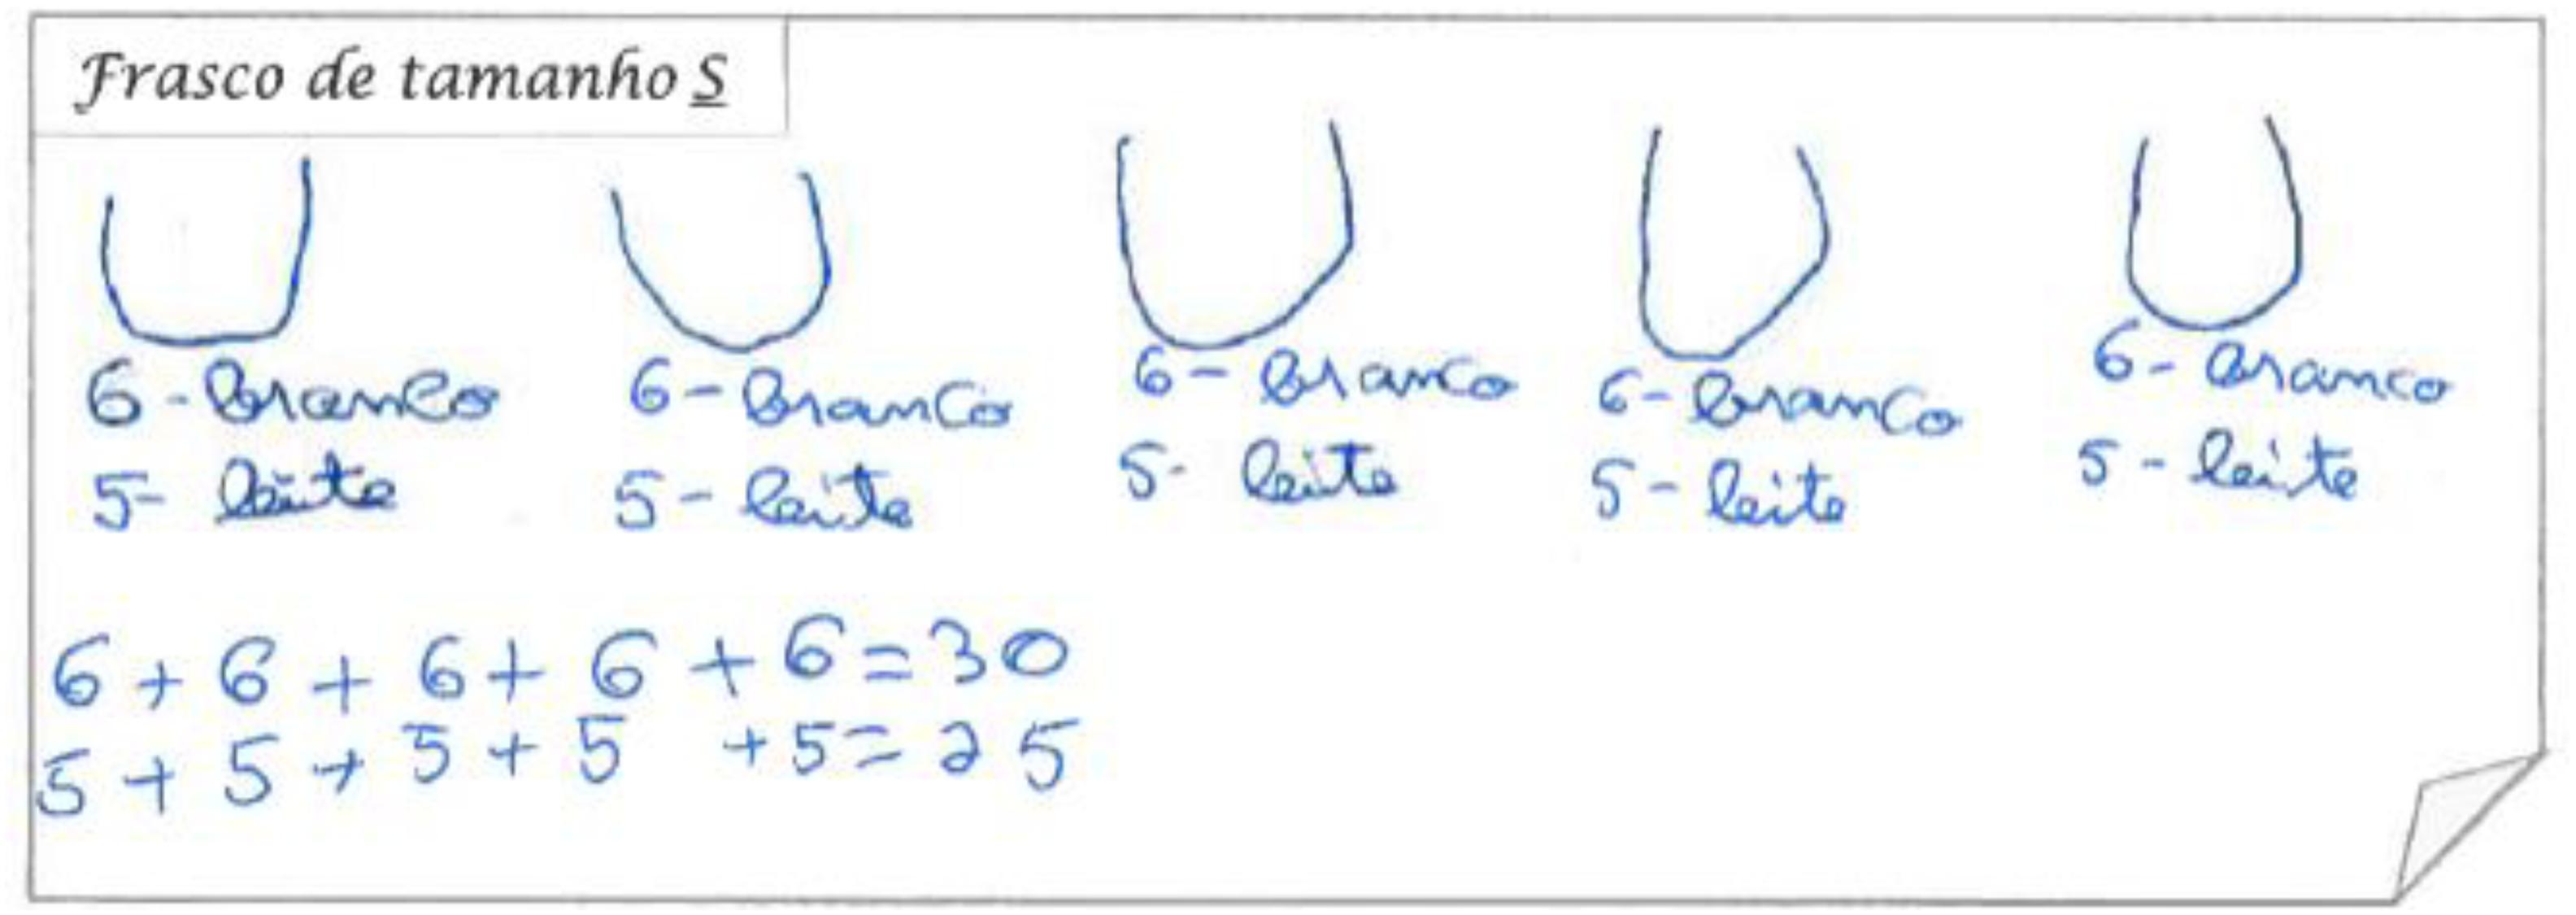 Frasco de tamanho S
6 - branco 6 - branco 6 - branco 6 - branco 6 - branco
5 - leite 5 - leite 5 - leite 5 - leite 5 - leite
6 + 6 + 6 + 6 + 6 = 30
5 + 5 + 5 + 5 + 5 = 25